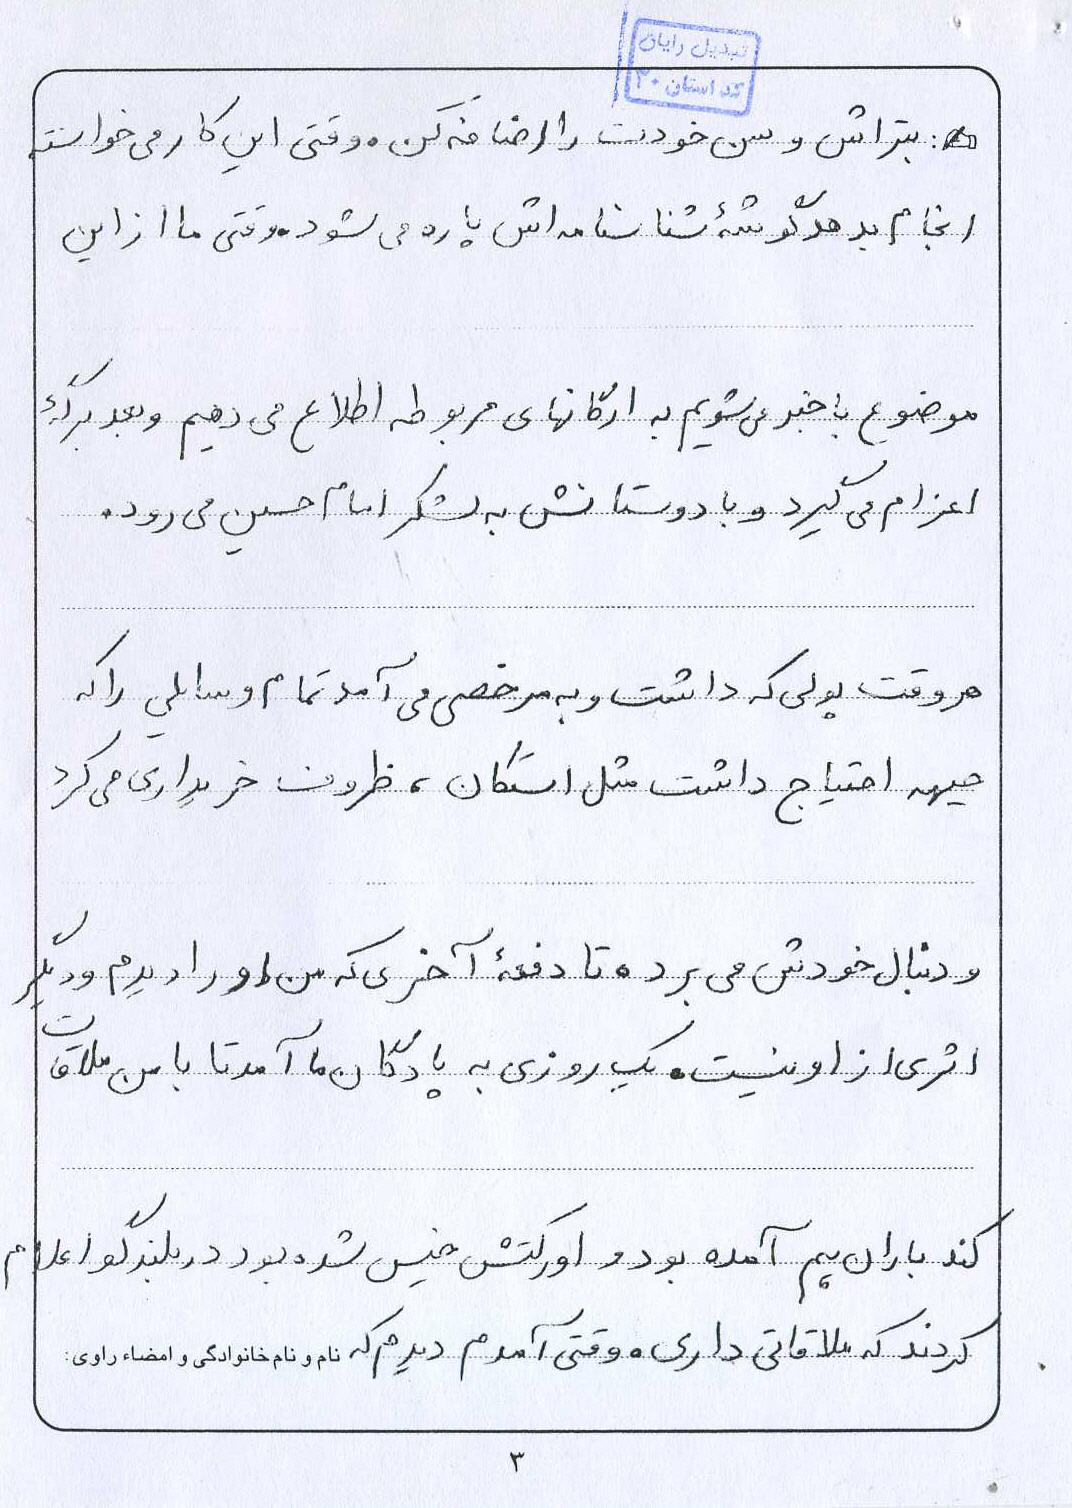 تبدیل رایان
کد استان ۳۰
: بتراش و سن خودت را اضافه کن. وقتی این کار می‌خواسته
انجام بدهد گوشهٔ شناسنامه‌اش پاره می‌شود. وقتی ما از این
موضوع با خبر می‌شویم به ارگانهای مربوطه اطلاع می‌دهیم و بعد برگهٔ
اعزام می‌گیرد و با دوستانش به لشکر امام حسین می‌رود.
هر وقت پولی که داشت و به مرخصی می‌آمد تمام وسایلی را که
جبهه احتیاج داشت مثل استکان، ظروف خریداری می‌کرد
و دنبال خودش می‌برد. تا دفعهٔ آخری که من او را دیدم و دیگر
اثری از او نیست. یک روزی به پادگان ما آمد تا با من ملاقات
کند باران هم آمده بود و اورکتش خیس شده بود در بلندگو اعلام
کردند که ملاقاتی داری. وقتی آمدم دیدم که نام و نام خانوادگی و امضاء راوی:
۳